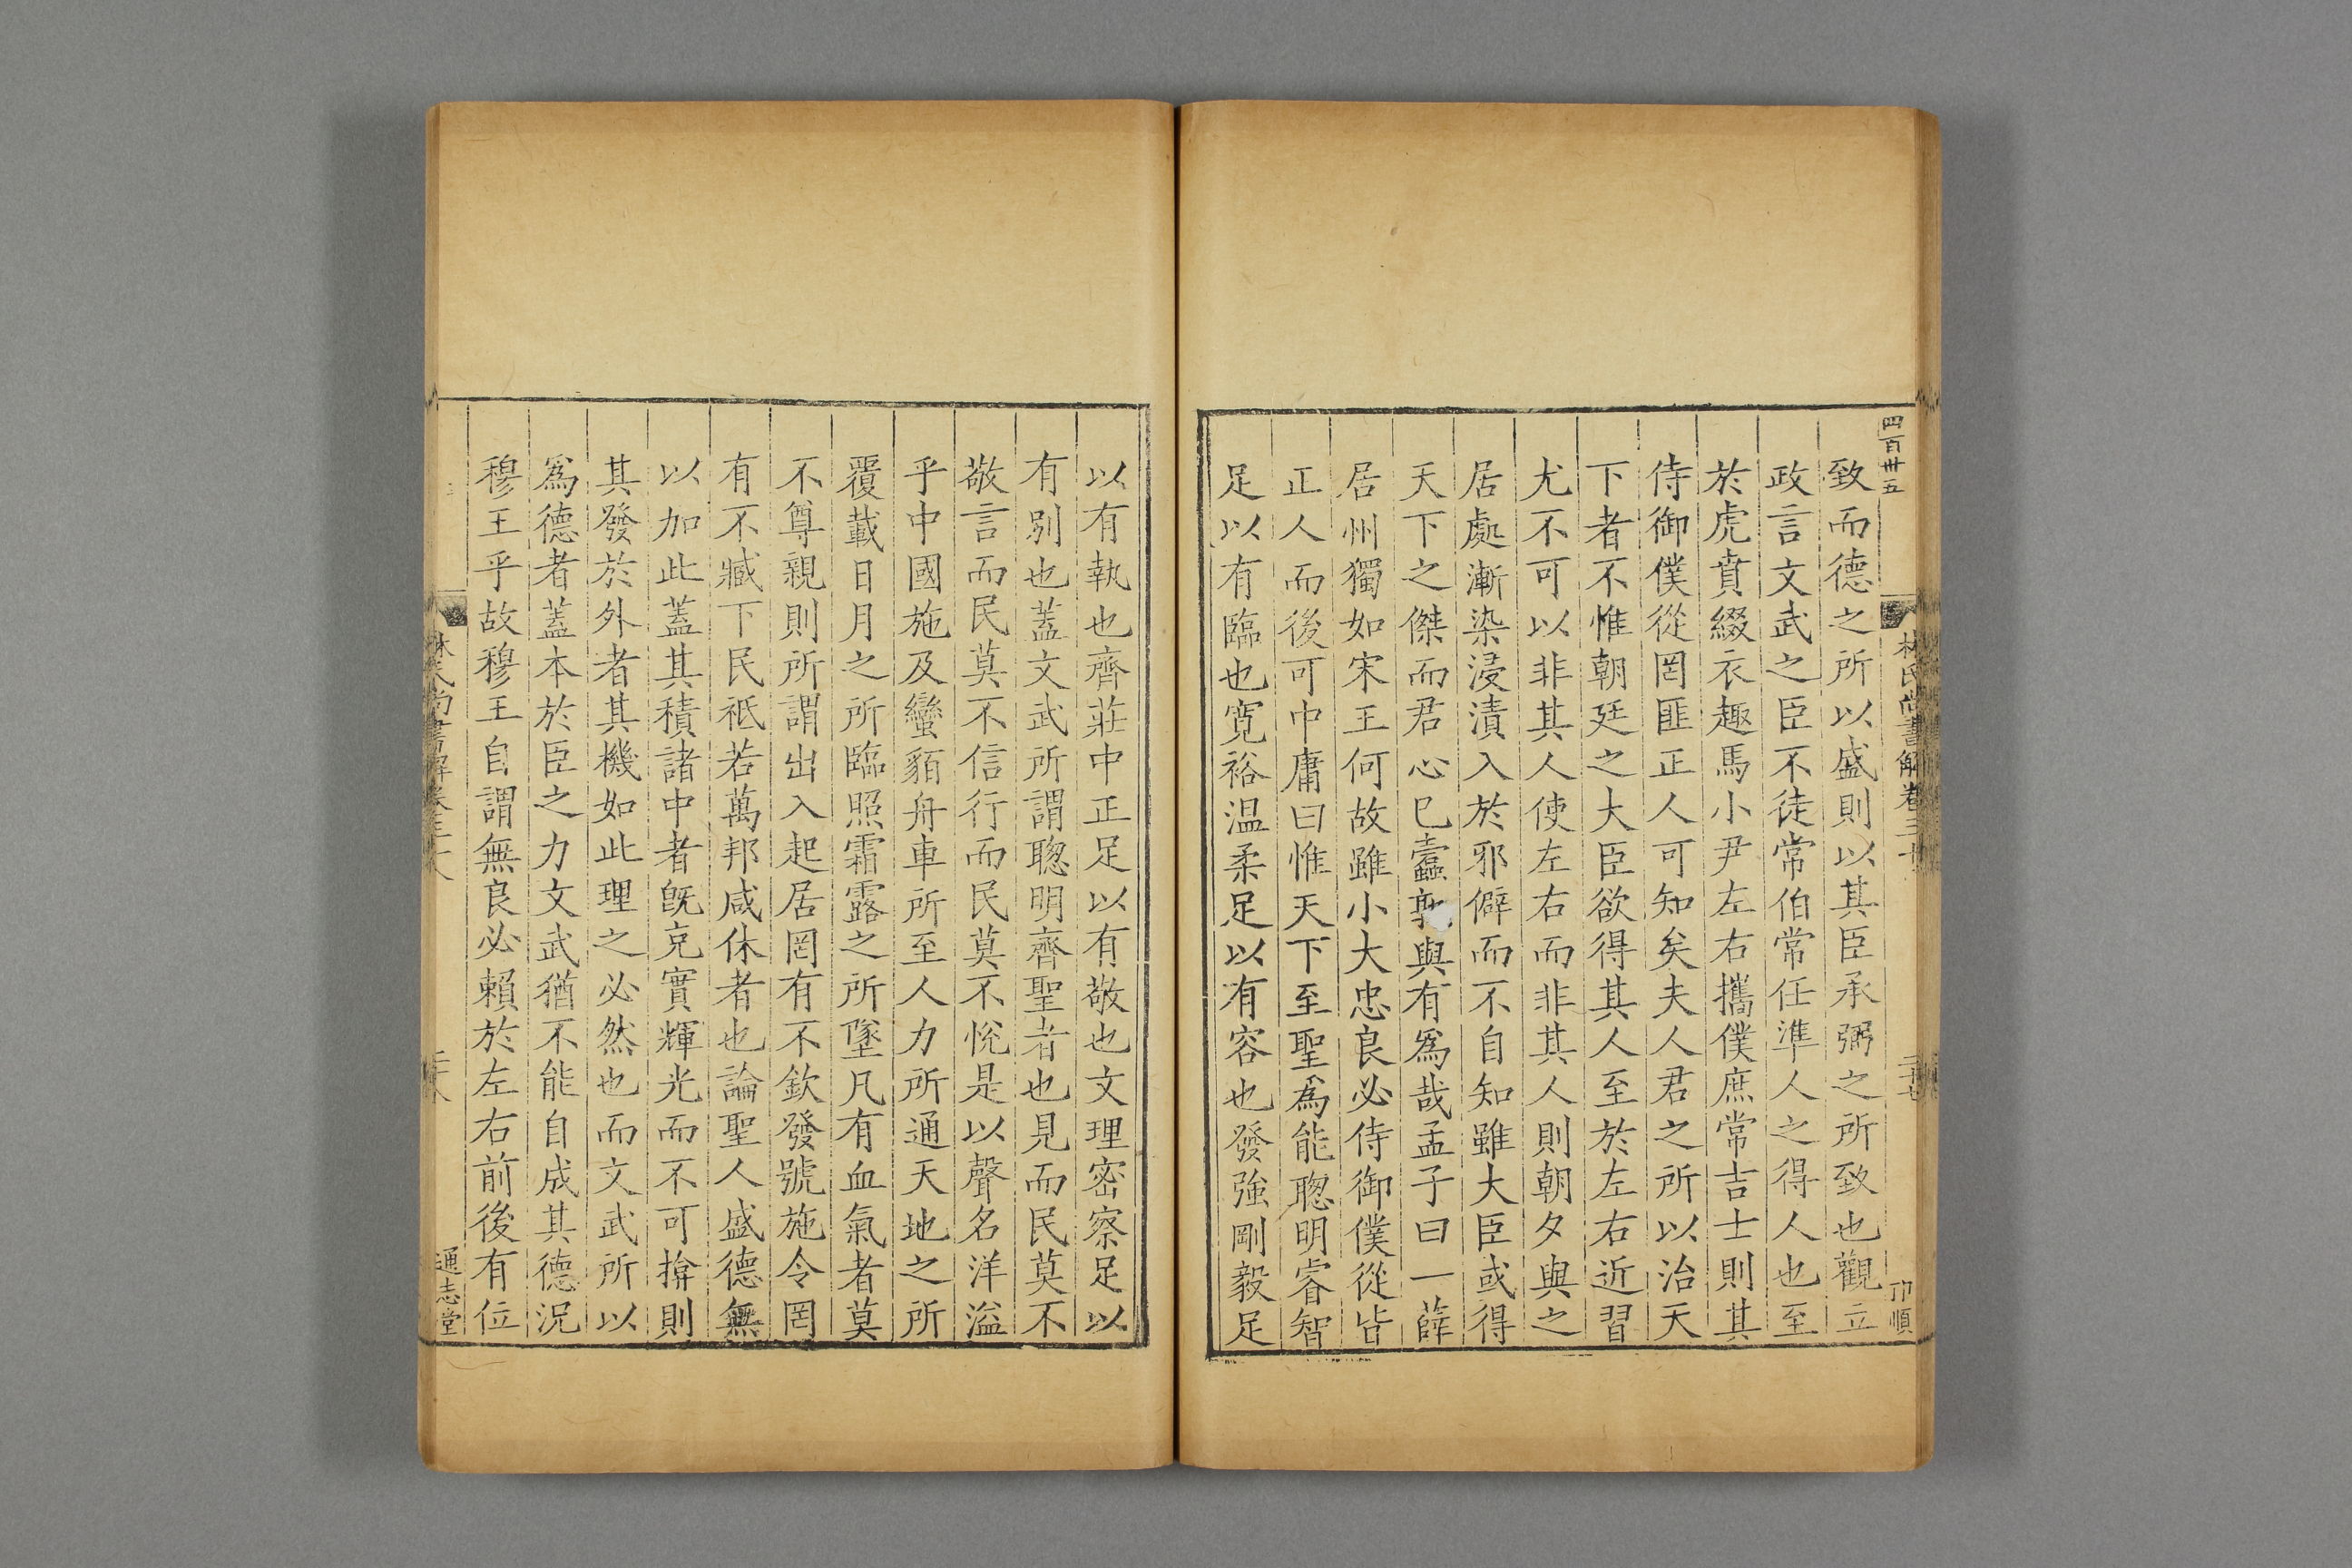 四百卅五
林氏尚書解卷三十
二十七
卬順
致而德之所以盛則以其臣承弼之所致也觀立
政言文武之臣不徒常伯常任準人之得人也至
於虎賁綴衣趣馬小尹左右攜僕庶常吉士則其
侍御僕從罔匪正人可知矣夫人君之所以治天
下者不惟朝廷之大臣欲得其人至於左右近習
尤不可以非其人使左右而非其人則朝夕與之
居處漸染浸漬入於邪僻而不自知雖大臣或得
天下之傑而君心已蠹孰與有爲哉孟子曰一薛
居州獨如宋王何故雖小大忠良必侍御僕從皆
正人而後可中庸曰惟天下至聖爲能聰明睿智
足以有臨也寬裕温柔足以有容也發強剛毅足
以有執也齊莊中正足以有敬也文理密察足以
有別也蓋文武所謂聰明齊聖者也見而民莫不
敬言而民莫不信行而民莫不悅是以聲名洋溢
乎中國施及蠻貊舟車所至人力所通天地之所
覆載日月之所臨照霜露之所墜凡有血氣者莫
不尊親則所謂出入起居罔有不欽發號施令罔
有不臧下民祗若萬邦咸休者也論聖人盛德無
以加此蓋其積諸中者旣充實輝光而不可揜則
其發於外者其機如此理之必然也而文武所以
爲德者蓋本於臣之力文武猶不能自成其德況
穆王乎故穆王自謂無良必賴於左右前後有位
林氏尚書解卷三十
二十八
通志堂